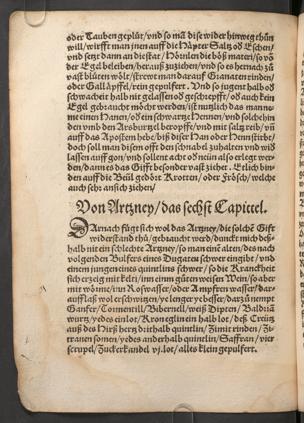 oder Tauben geplüt / vnd so mã dise wider hinweg thůn
will / wirfft man jnen auff die Häpter Saltz oð Eschen /
vnd setzt dann an die stat / Hörnlen die böß materi / so võ
der Egel beleiben / herauß zuziehen / vnd so es hernach zů
vast blüten wölt / strewt man darauf Granaten rinden /
oder Galläpffel / rein gepulfert. Vnd so jugent halb oð
schwacheit halb nit gelassen oð geschrepfft / oð auch kein
Egel gebraucht möcht werden / ist nutzlich das man neme
einen Hanen / oð ein schwartze Hennen / vnd solche hin
den vmb den Arsburgel beropffe / vnd mit saltz reib / vñ
auff das Apostem hebe / biß diser Han oder Henn stirbt /
doch soll man disem offt den schnabel zuhalten vnd wið
lassen auff gon / vnd sollent acht oð neün also erlegt werden /
dann es das Gifft besonder vast zicher. Etlich binden
auff die Beül gedört Krotten / oder Frösch / welche
auch sehr ansich ziehen /
Von Artzney / das sechst Capittel.
DArnach fügt sich wol das Artzney / die solchẽ Gifft
widerstand thů / gebraucht werd / dunckt mich deßhalb
nit ein schlechte Artzney / so man einẽ alten / des nach
volgenden Bulfers eines Dugaten schwer eingibt / vnd
einem jungen eines quintlins schwer / so die Kranckheit
sich erzeig mit kelt / inn einm gůten weissen Wein / so aber
mit wörme / inn Roswasser / oder Ampfren wasser / darauff
laß wol erschwitzen / ye lenger ye besser / darzů nempt
Ganfer / Tormentill / Bibernell / weiß Dipten / Baldriã
wurtz / yedes ein lot / Kronegl ein halb lot / deß Creütz
auß des Hirß hertz drithalb quintlin / Zimit rinden / Zitronen
somen / yedes anderhalb quintlin / Saffran / vier
scrupel / Zuckerkandel vj. lot / alles klein gepulfert.